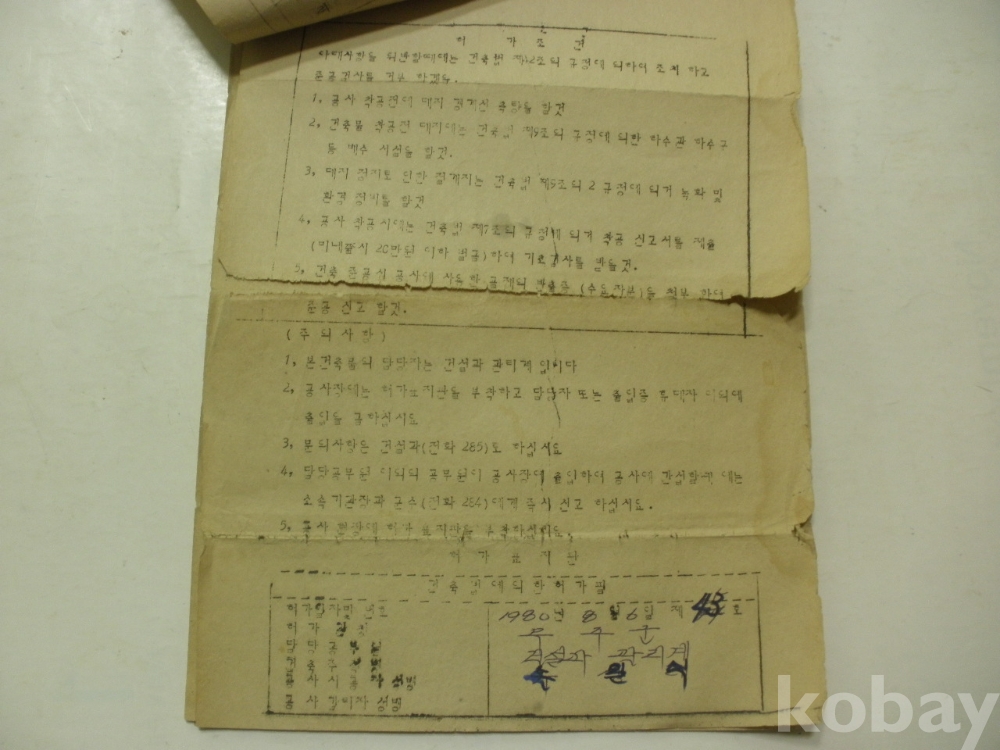 허 가 조 건
건축법 제42조의 규정에 의하여 조치 하고
준공검사를 거부 하겠음.
1, 공사 착공전에 대지 경계선 측량을 할것
2, 건축물 착공전 대지에는 건축법 제5조의 규정에 의한 하수관 하수구
등 배수 시설을 할것.
3, 대지 건축법 제5조의 2 규정에 의거 녹화 및
환경 정지를 할것
4, 공사 착공시에는 건축법 제7조의 규정에 의거 착공 신고서를 제출
20만원 이하 벌금)하여 기초검사를 받을것.
5, 건축 준공시 공사에 사용한 을 첨부 하여
준공 신고 할것.
(주 의 사 항)
1, 본건축물의 담당자는 건설과 관리계 입니다
2, 공사장에는 허가표지판을 부착하고 담당자 또는 출입증 휴대자 이외에
출입을 금하십시요
3, 문의사항은 건설과(전화 285)로 하십시요
4, 담당공무원 이외의 공무원이 공사장에 출입하여 공사에 간섭할 에는
소속기관장과 군수(전화 284)에게 즉시 신고 하십시요.
5, 공사 현장에 허가 표지판을 부착하십시요
허 가 표 지 판
건축법에의한허가판
허가
1980년 8월 6일 제 호
허가
무 주 군
담당공
건설과 관리계
건축주
공사시공자 성명
공사감리자 성명
kobay